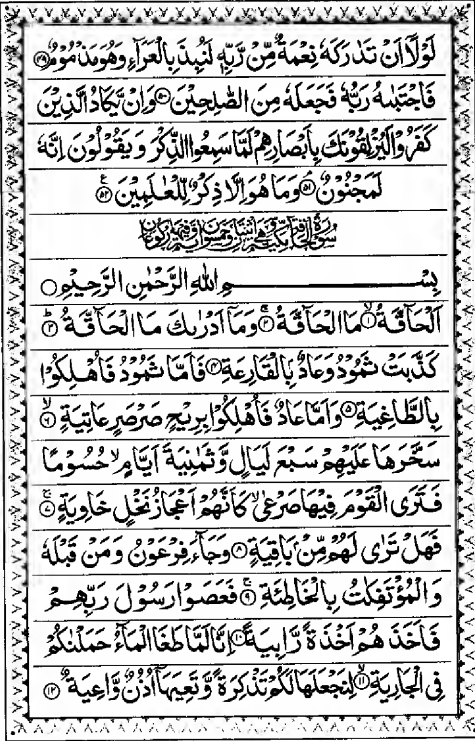 لَوْلَآ اَنْ تَدٰرَكَهٗ نِعْمَةٌ مِّنْ رَّبِّهٖ لَنُبِذَ بِالْعَرَآءِ وَهُوَ مَذْمُوْمٌ ﴿۴۹﴾
فَاجْتَبٰىهُ رَبُّهٗ فَجَعَلَهٗ مِنَ الصّٰلِحِيْنَ ﴿۵۰﴾ وَاِنْ يَّكَادُ الَّذِيْنَ
كَفَرُوْا لَيُزْلِقُوْنَكَ بِاَبْصَارِهِمْ لَمَّا سَمِعُوا الذِّكْرَ وَيَقُوْلُوْنَ اِنَّهٗ
لَمَجْنُوْنٌ ﴿۵۱﴾ وَمَا هُوَ اِلَّا ذِكْرٌ لِّلْعٰلَمِيْنَ ﴿۵۲﴾
بِسْمِ اللّٰهِ الرَّحْمٰنِ الرَّحِيْمِ
اَلْحَآقَّةُ ﴿۱﴾ مَا الْحَآقَّةُ ﴿۲﴾ وَمَآ اَدْرٰىكَ مَا الْحَآقَّةُ ﴿۳﴾
كَذَّبَتْ ثَمُوْدُ وَعَادٌۢ بِالْقَارِعَةِ ﴿۴﴾ فَاَمَّا ثَمُوْدُ فَاُهْلِكُوْا
بِالطَّاغِيَةِ ﴿۵﴾ وَاَمَّا عَادٌ فَاُهْلِكُوْا بِرِيْحٍ صَرْصَرٍ عَاتِيَةٍ ﴿۶﴾
سَخَّرَهَا عَلَيْهِمْ سَبْعَ لَيَالٍ وَّثَمٰنِيَةَ اَيَّامٍ حُسُوْمًا
فَتَرَى الْقَوْمَ فِيْهَا صَرْعٰى كَاَنَّهُمْ اَعْجَازُ نَخْلٍ خَاوِيَةٍ ﴿۷﴾
فَهَلْ تَرٰى لَهُمْ مِّنْۢ بَاقِيَةٍ ﴿۸﴾ وَجَآءَ فِرْعَوْنُ وَمَنْ قَبْلَهٗ
وَالْمُؤْتَفِكٰتُ بِالْخَاطِئَةِ ﴿۹﴾ فَعَصَوْا رَسُوْلَ رَبِّهِمْ
فَاَخَذَهُمْ اَخْذَةً رَّابِيَةً ﴿۱۰﴾ اِنَّا لَمَّا طَغَا الْمَآءُ حَمَلْنٰكُمْ
فِى الْجَارِيَةِ ﴿۱۱﴾ لِنَجْعَلَهَا لَكُمْ تَذْكِرَةً وَّتَعِيَهَآ اُذُنٌ وَّاعِيَةٌ ﴿۱۲﴾